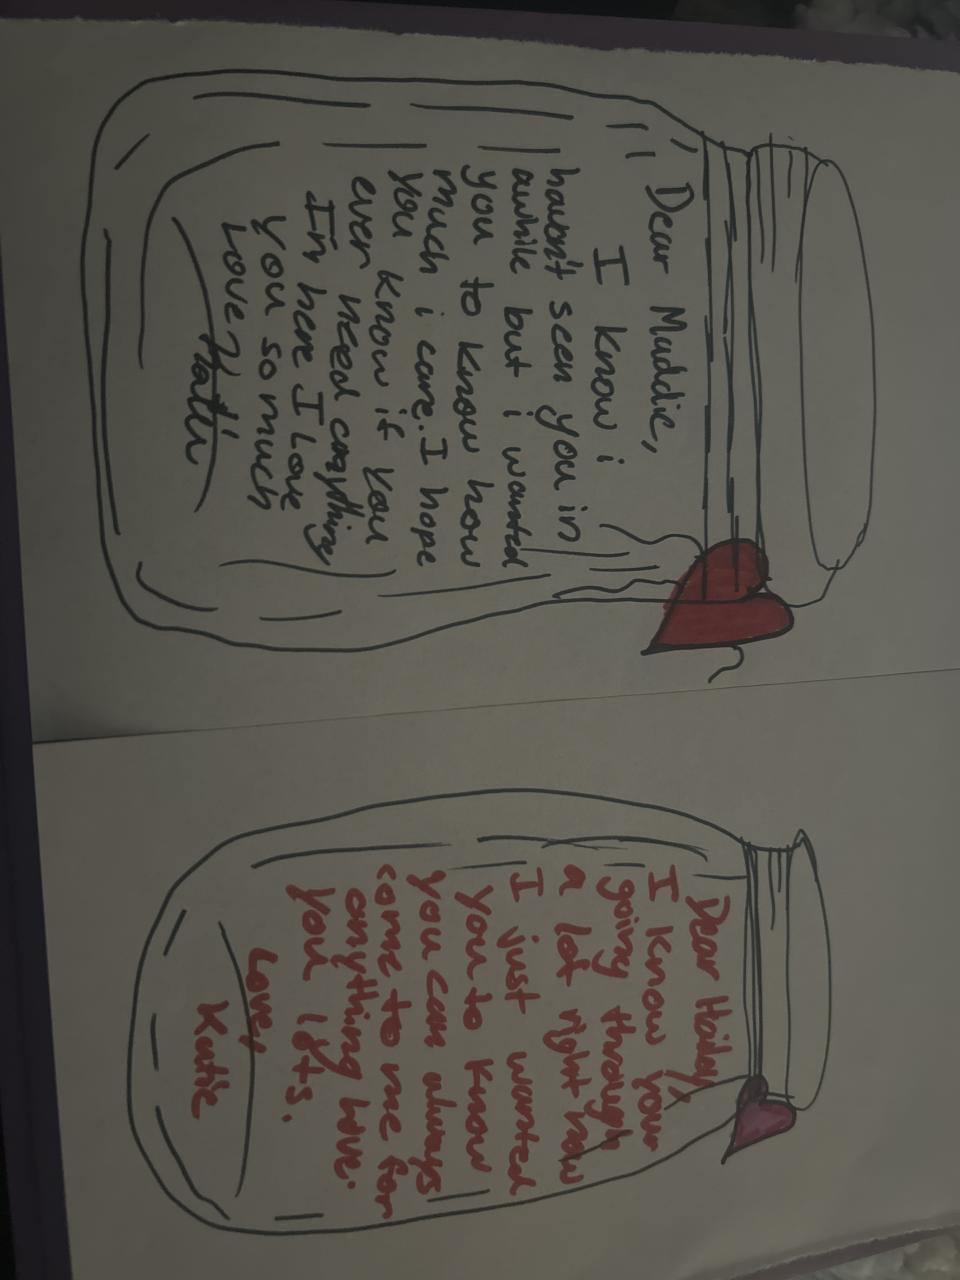 Dear Maddie,
I know i
haven't seen you in
awhile but i wanted
you to know how
much i care. I hope
you know if you
ever need anything
Im here I love
you so much
Love,
Katie
Dear Hailey,
I know your
going through
a lot right now
I just wanted
you to know
you can always
come to me for
anything love.
you lots.
Love,
Katie